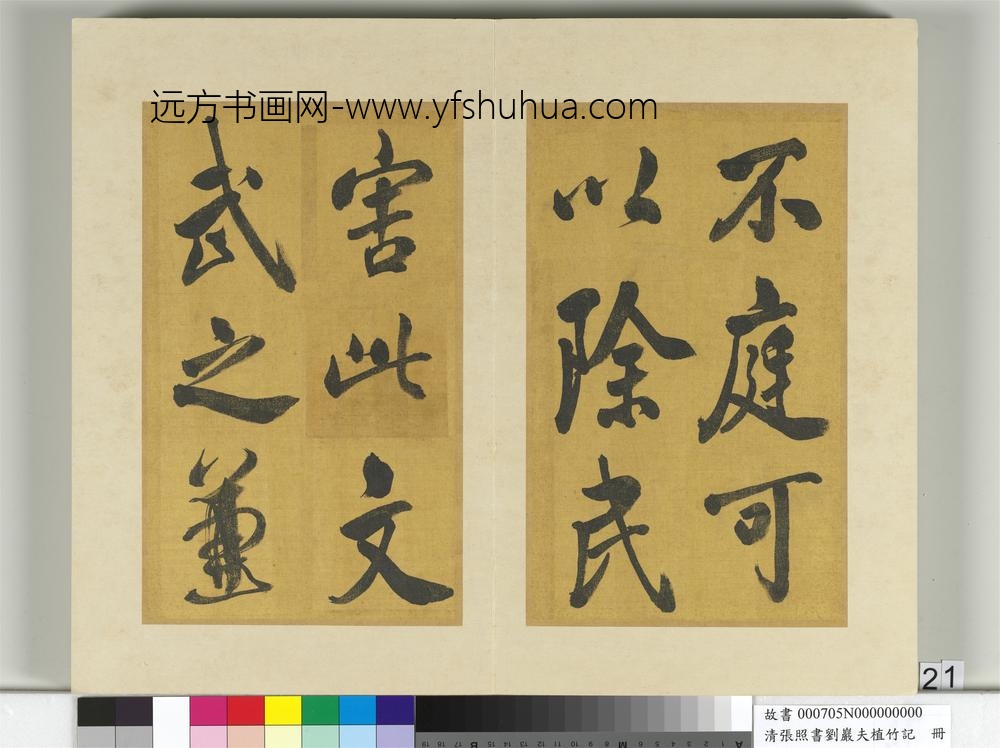 远方书画网-www.yfshuhua.com
不庭可
以除民
害此文
武之兼
21
故書 000705N000000000
清張照書劉巖夫植竹記 冊